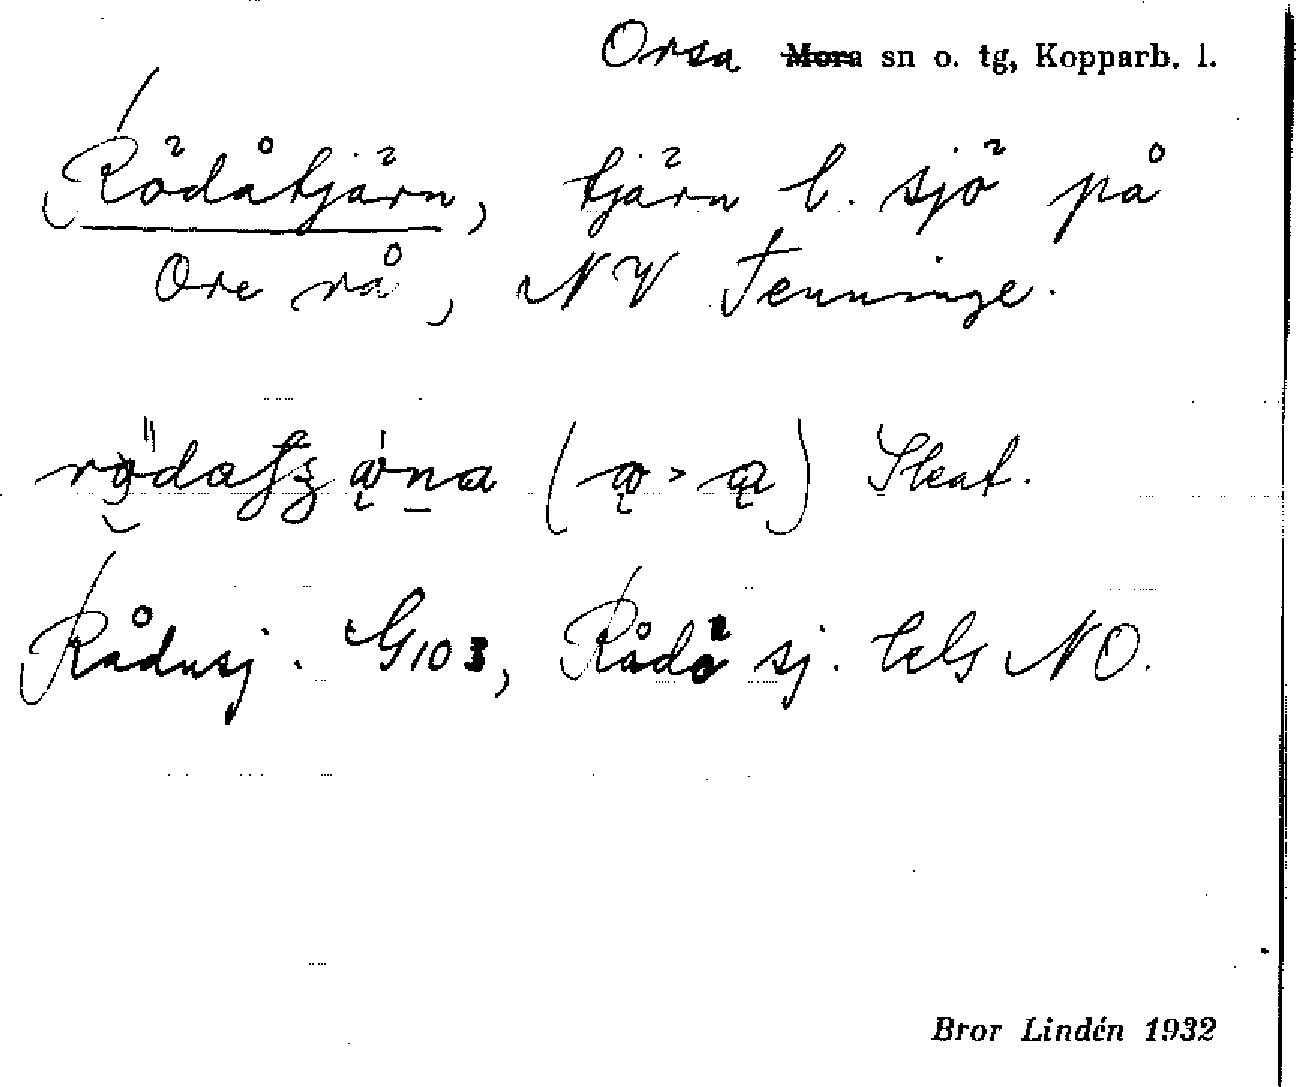 Orsa Mora sn o. tg, Kopparb. l.
Rödåtjärn, tjärn l. sjö på
Ore rå, NV Tenninge.
Skat.
Rådusj. G103, Rådö sj. NO.
Bror Lindén 1932